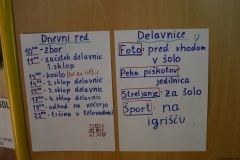 Dnevni red
10:00 - zbor
11:00 - začetek delavnic
1. sklop
13:00 - kosilo
14:00 - 2. sklop delavnic
15:00 - 3. sklop delavnic
- 4. sklop delavnic
- odhod na večerjo
22:00 - tišina v telovadnici
Delavnice
Foto: pred vhodom
v šolo
Peka piškotov:
jedilnica
Streljanje: za šolo
Šport: na
igrišču